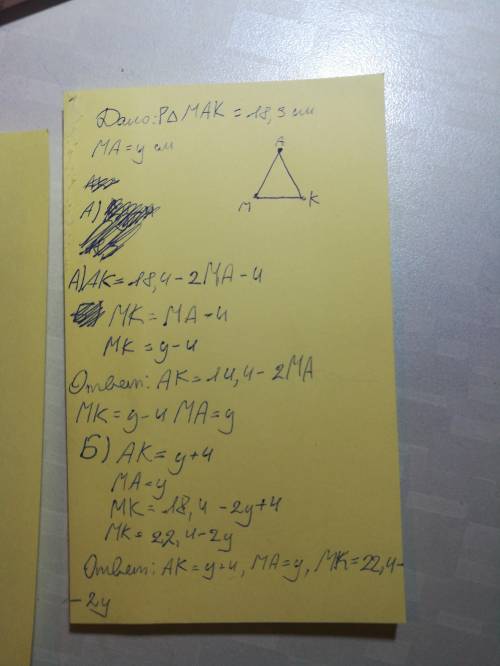 Дано: P△ MAK = 18,4 см
MA = y см
A
M K
А)
А) AK = 18,4 - 2MA - 4
MK = MA - 4
MK = y - 4
Ответ: AK = 14,4 - 2MA
MK = y - 4 MA = y
Б) AK = y + 4
MA = y
MK = 18,4 - 2y + 4
MK = 22,4 - 2y
Ответ: AK = y + 4, MA = y, MK = 22,4 -
- 2y